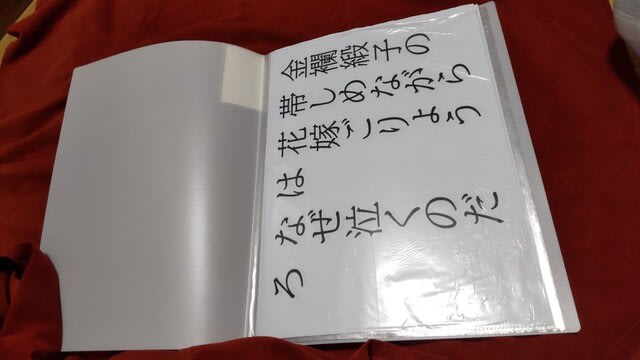 金欄緞子の
帯しめながら
花嫁ごりよう
は
なぜ泣くのだ
ろ